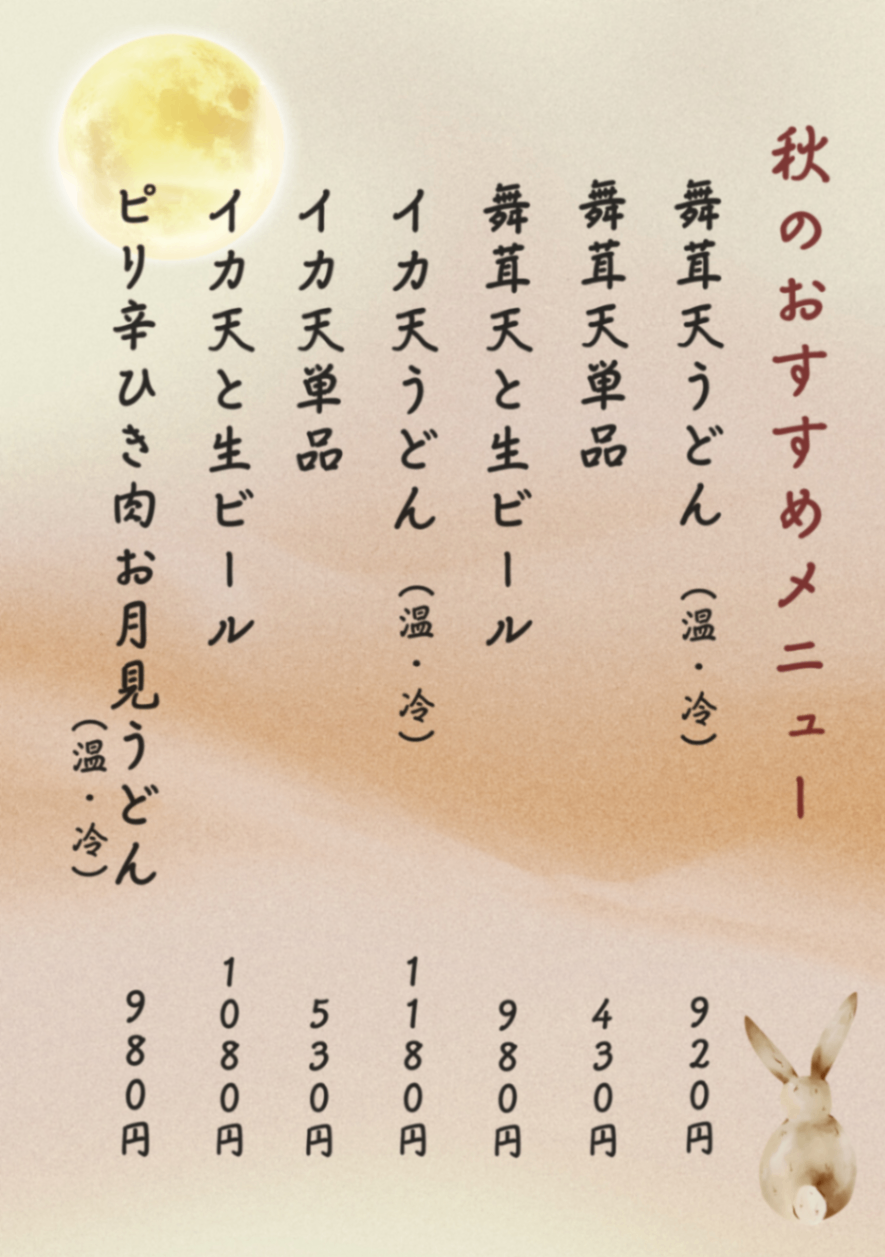 秋のおすすめメニュー
舞茸天うどん（温・冷） 920円
舞茸天単品 430円
舞茸天と生ビール 980円
イカ天うどん（温・冷） 1180円
イカ天単品 530円
イカ天と生ビール 1080円
ピリ辛ひき肉お月見うどん（温・冷） 980円